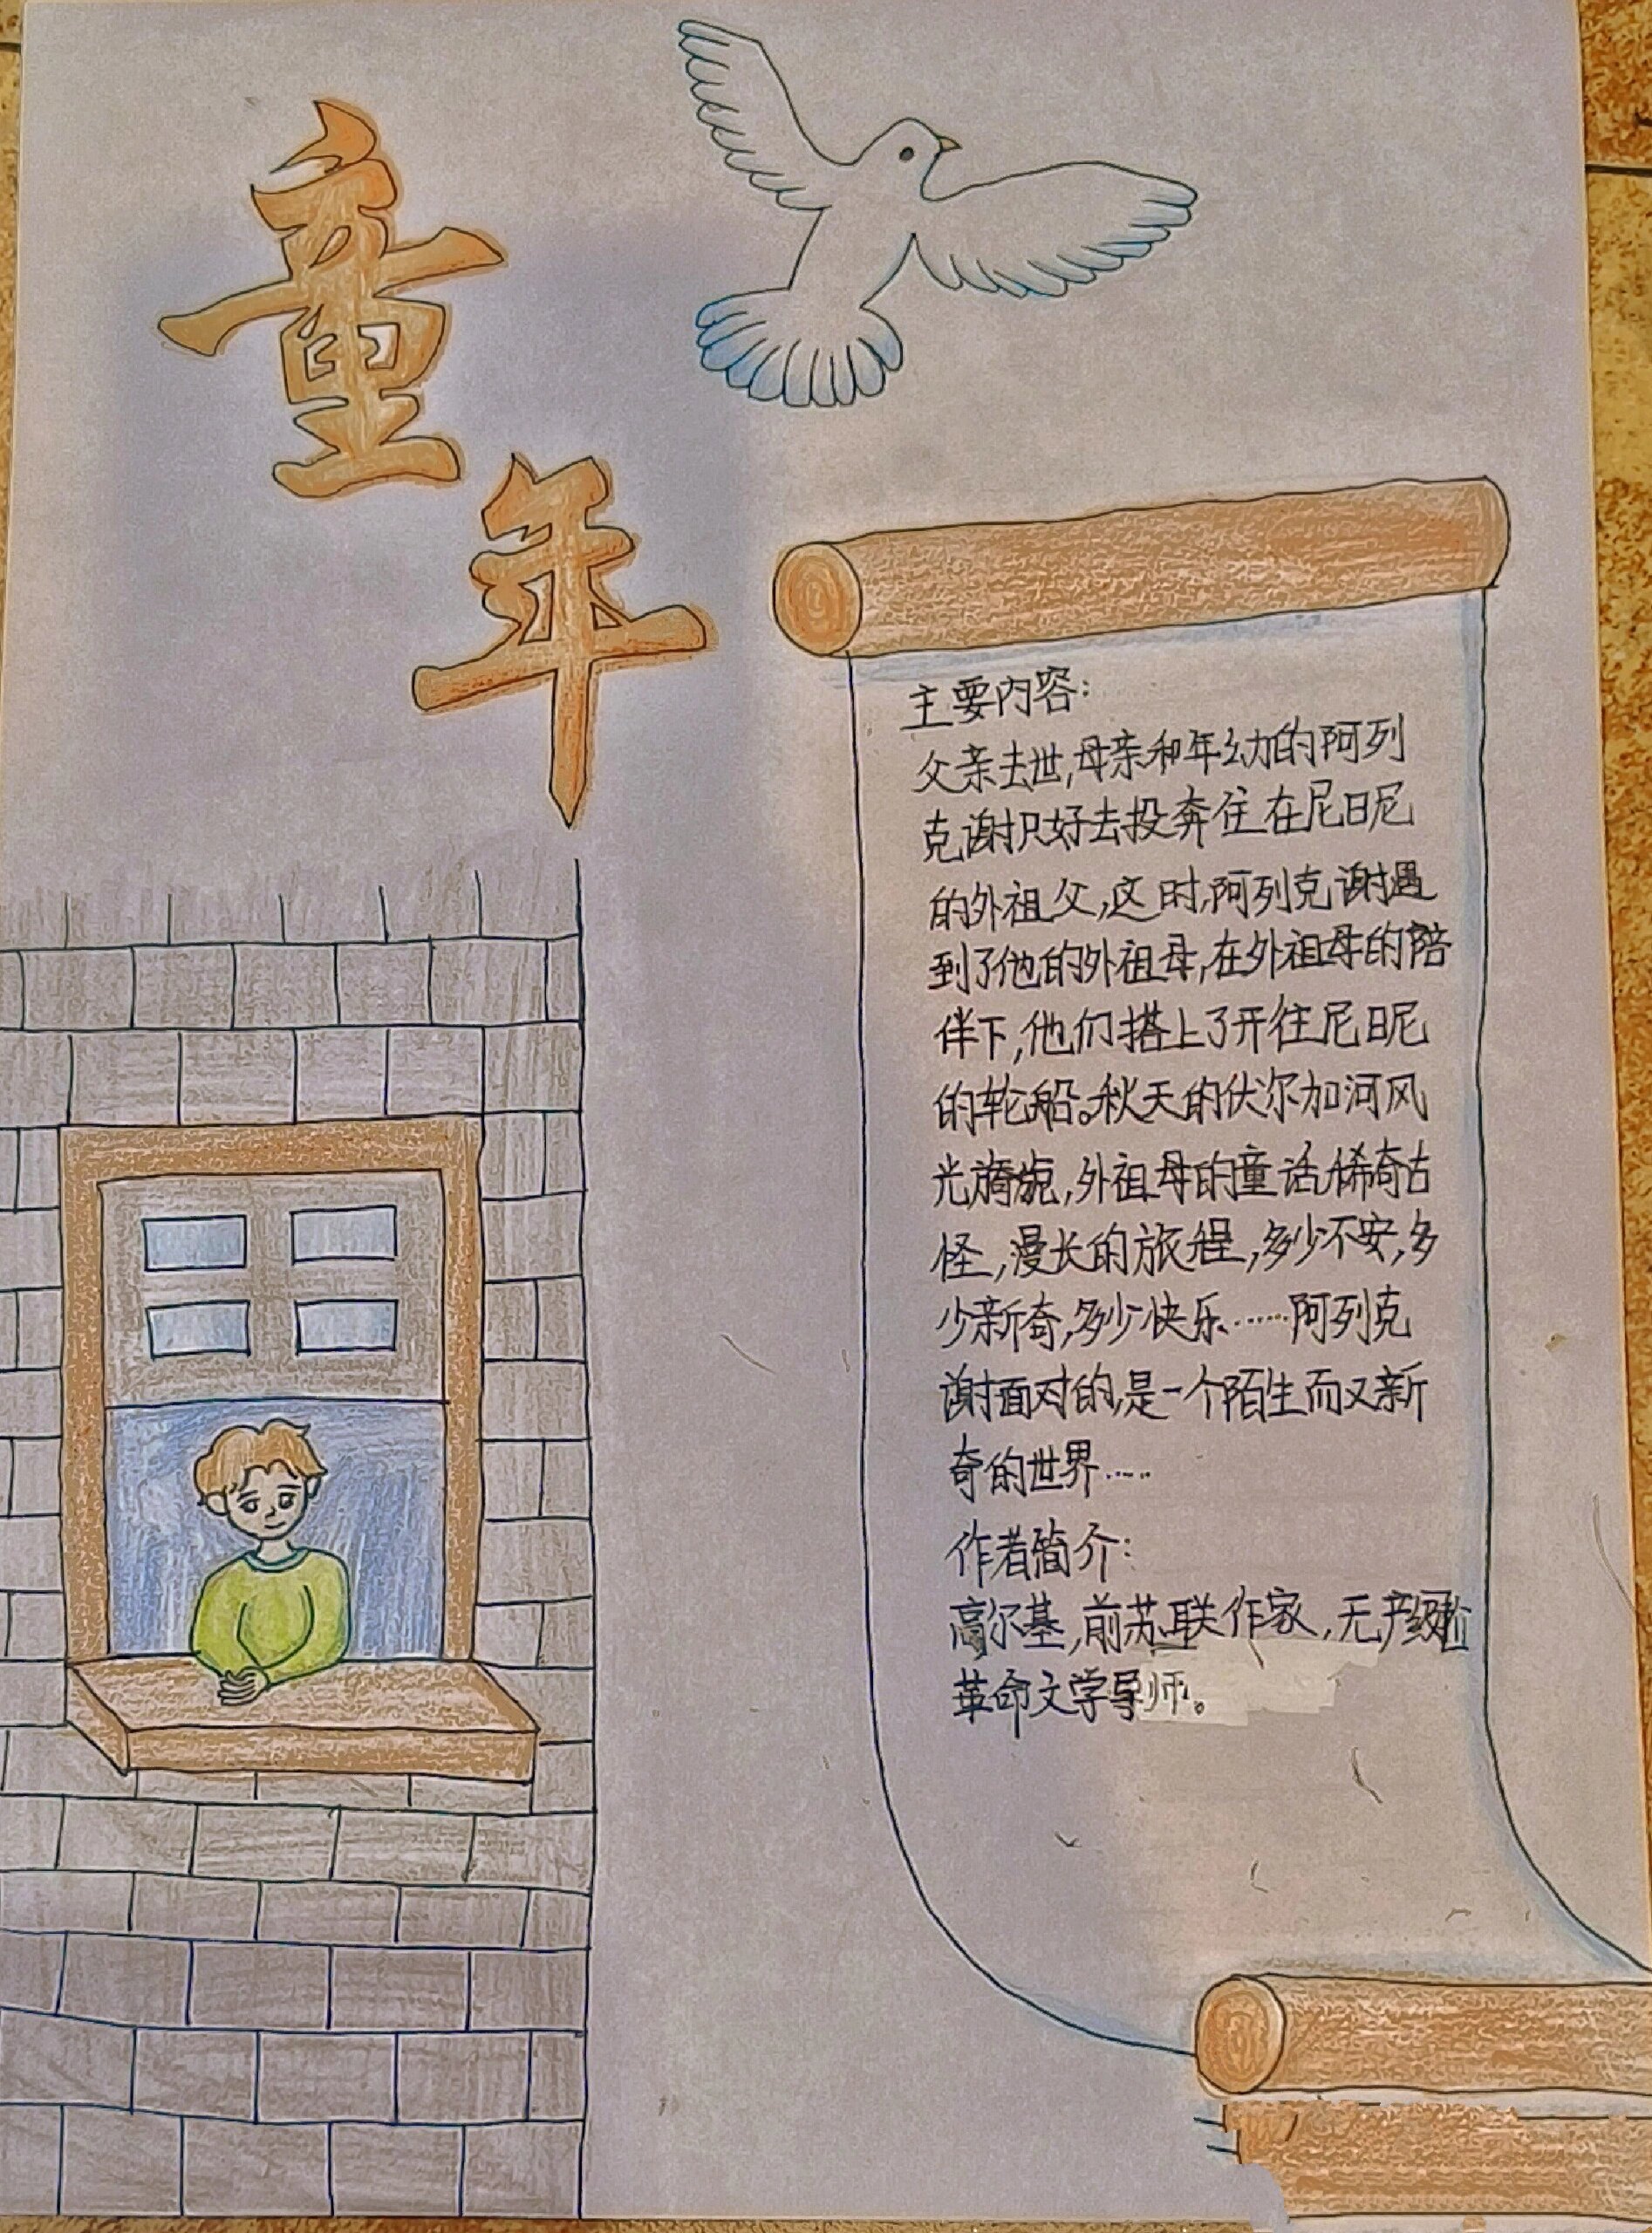 童
年
主要内容：
父亲去世,母亲和年幼的阿列
克谢只好去投奔住在尼日尼
的外祖父,这时,阿列克谢遇
到了他的外祖母,在外祖母的陪
伴下,他们搭上了开往尼日尼
的轮船。秋天的伏尔加河风
光旖旎,外祖母的童话稀奇古
怪,漫长的旅程,多少不安,多
少新奇,多少快乐……阿列克
谢面对的,是一个陌生而又新
奇的世界……
作者简介：
高尔基,前苏联作家,无产阶级
革命文学导师。